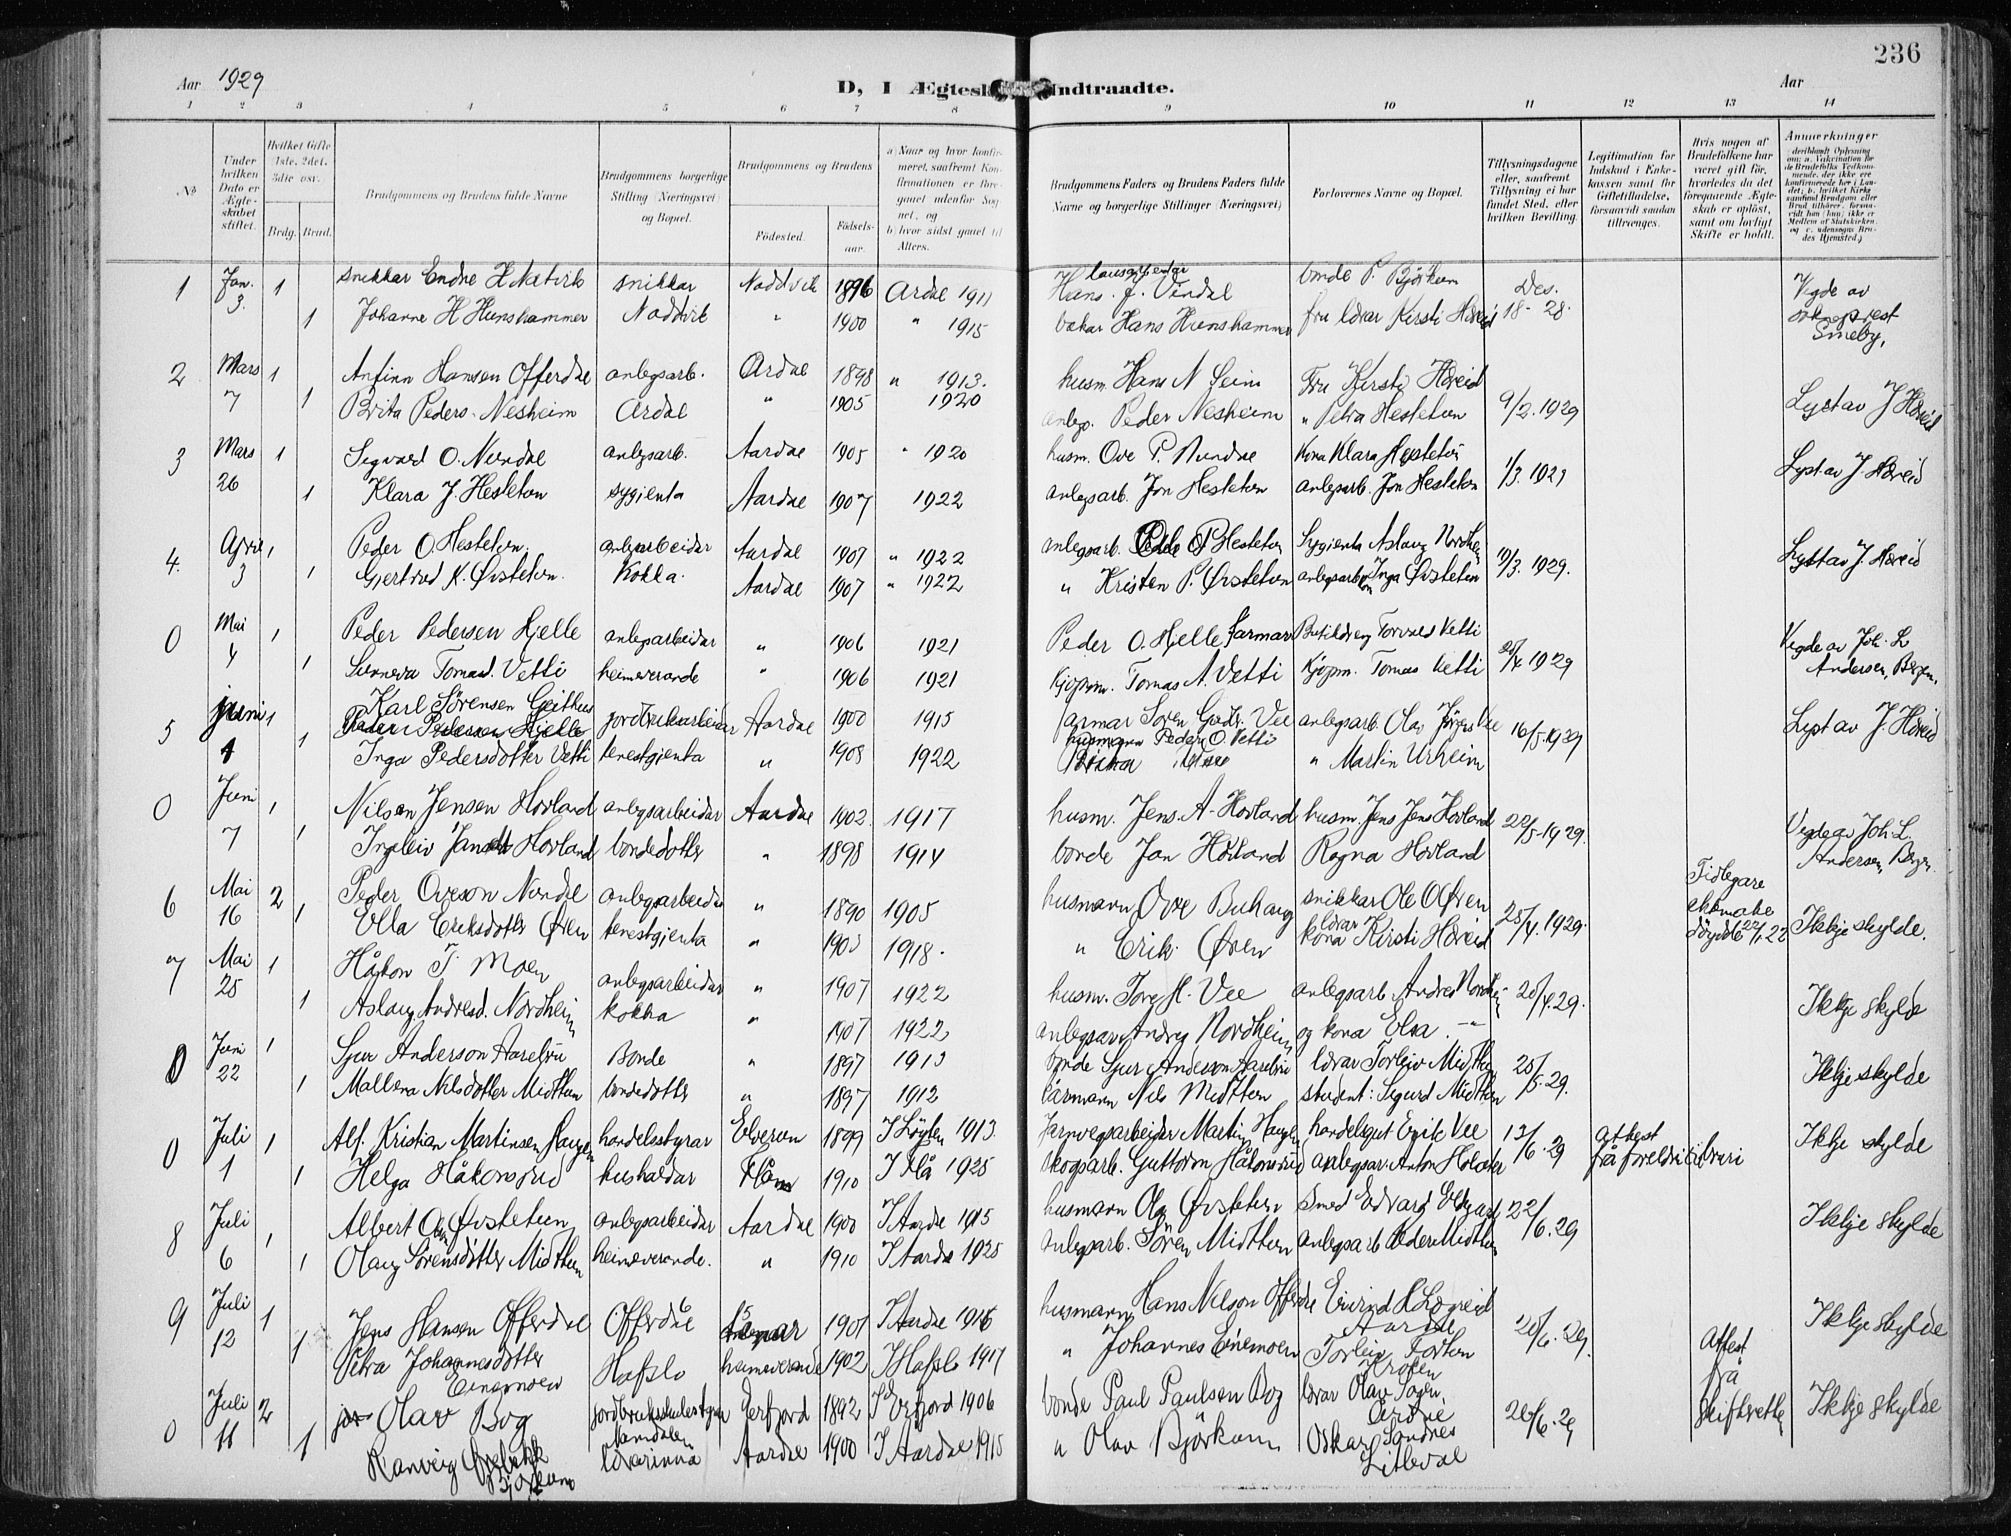 236
Aar 1929
D, I Ægtesk Indtraadte.
Aar
1 2 3 4 5 6 7 8 9 10 11 12 13 14
No
Under hvilken Dato er Ægteskabet stiftet.
Hvilket Gifte 1ste, 2det, 3die osv.
Brdg. Brud.
Brudgommens og Brudens fulde Navne
Brudgommens borgerlige Stilling (Næringsvei) og Bopæl.
Brudgommens og Brudens
Fødested.
Fødselsaar.
a) Naar og hvor konfirmeret, saafremt Konfirmationen er foregaaet udenfor Sognet, og b) hvor sidst gaaet til Alters.
Brudgommens Faders og Brudens Faders fulde Navne og borgerlige Stillinger (Næringsvei)
Forlovernes Navne og Bopæl.
Tillysningsdagene eller, saafremt Tillysning ei har fundet Sted, efter hvilken Bevilling.
Legitimation for Indskud i Enkekassen samt for Giftetilladelse, forsaavidt saadan tiltrænges.
Hvis nogen af Brudefolkene har været gift før, hvorledes da det foregaaende Ægteskab er opløst, samt om lovligt Skifte er holdt.
Anmerkninger
1 Jan. 3. 1 snikkar Endre H Natvik snikkar Naddvik 1896 Ardal 1911 Hans. J. Vindal bonde P. Björkum Des. 18-28. Vigde av sokneprest Smeby,
1 Johanne H Hunshammer Naddvik " 1900 " 1915 bakar Hans Hunshammer fru lærar Kirsti Hæreid
2 Mars 7 1 Anfinn Hansen Offerdal anlegsarb. Ardal 1898 " 1913. husm Hans N Seim Fru Kirsti Hæreid 9/2.1929 Lyst av J Hæreid
1 Brita Peders. Nesheim Ardal " 1905 1920 anlegs. Peder Nesheim " Petra Hestetun
3 Mars 26 1 Sigvard O. Nundal anlegsarb. Aardal 1905 " 1920 husm. Ove P. Nundal Kona Klara Hestetun 1/3.1929 Lyst av J. Hæreid
1 Klara J. Hestetun sygjenta Aardal 1907 1922 anlegsarb. Jon Hestetun anlegsarb. Jon Hestetun
4. April 3 1 Peder O. Hestetun anlegsarbeidar Aardal 1907 " 1922 anlegsarb. P Hestetun Sygjenta Aslaug Nordheim 19/3.1929. Lyst av J. Hæreid
1 Gjertrud K. Øvstetun. Kokka. Aardal 1907 " 1922 " Kristen P. Øvstetun anlegsarb Inga Øvstetun
0 Mai 4 1 Peder Pedersen Hjelle anlegsarbeidar " 1906 1921 Peder O. Hjelle farmar Torvald Vetti 1929 Vigde av Joh. L. Andersen, Bergen.
1 Sunneva Tomasd. Vetti heimeverande " 1906 1921 kjøpm. Tomas A. Vetti Kjøpm. Tomas Vetti
5 juni 1 1 Karl Sörensen Geithus jordbruksarbeidar Aardal 1900 1915 farmar Sören Vee anlegsarb. Olav Vee 16/5.1929 Lyst av J. Hæreid
Peder Pedersen Hjelle
1 Inga Pedersdotter Vetti tenestgjenta " 1903 1922 husmann Peder O. Vetti " Martin Urheim
0 Juni 7 1 Nilsen Jensen Hovland anlegsarbeidar Aardal 1902. 1917 husm. Jens. A. Hovland husm. Jens Jens Hovland 22/5-1929. Vigde av Joh. L. Andersen, Bergen.
1 Ingleiv Jansdtr Hovland bondedotter " 1898 1914 bonde Jan Hovland Ragna Hovland
6 Mai 16 2 Peder Oveson Nundal anlegsarbeidar " 1890 1905 husmann Ove Buhaug snikkar Ole O Øren 25/4.1929. Tidlegare ektemake døydde 27/1 22 Ikkje skylde.
1 Ella Eriksdotter Øren tenestgjenta " 1903 1918. " Erik Øren lærar kona Kirsti Hæreid
7 Mai 25 1 Håkon T. Moen anlegsarbeidar " 1907 1922 husm. Tore H. Vee anlegsarb. Andres Nordheim 20/4.29. Ikkje skylde
1 Aslaug Andresd. Nordheim kokka " 1907 1922 anlegsarb Andres Nordheim og kona Elsa -"-
0 Juni 22 1 Sjur Anderson Aarebru Bonde " 1897 1913 bonde Sjur Anderson Aarebru lærar Torleiv Midttun 25/5.29. Ikkje skylde
1 Mallena Nilsdotter Midttun bondedotter " 1897 1912 Nils Midttun student: Sigurd Midttun
0 Juli 1 1 Alf. Kristian Martinsen Haugen handelsstyrar Elverum 1899 I Löten 1913. Jarnvegsarbeidar Martin Haugen handelsgut Eirik Vee 13/6.29 attest frå foreldri Ikkje skylde
1 Helga Håkonsrud hushaldar Flå 1910 I Flå 1925 skogsarb. Guttorm Håkonsrud anlegsar. Anton
8 Juli 6 1 Albert Olsen Øvstetun anlegsarbeidar Aardal 1900 I Aardal 1915 husmann Ola Øvstetun Smed Edvard 22/6.29 Ikkje skylde
1 Olaug Sörensdotter Midttun heimeverande. " 1910 I Aardal 1925 anlegsarb. Sören Midttun anlegsarb. Peder Midttun
9 Juli 12 1 Jens Hansen Offerdal Offerdal 1901 I Aardal 1916 husmann Hans Nilson Offerdal Eivind Aardal 20/6.29. Attest frå skifteretten Ikkje skylde
1 Petra Johannesdotter Einemoen Hafslo heimeverande 1902 I Hafslo 1917 " Johannes Einemoen Torleiv Fortun
0 Juli 11 2 Olav Bog jordbruksskulestyrar Namdalen Jerfjord 1892 I Erfjord 1906 bonde Paul Paulsen Bog lærar Olav Ardal 20/6.29 Ikkje skylde
1 Ranveig Björkum lærarinna Aardal 1900 I Aardal 1915 " Olav Björkum Oskar Sandnes Litleval